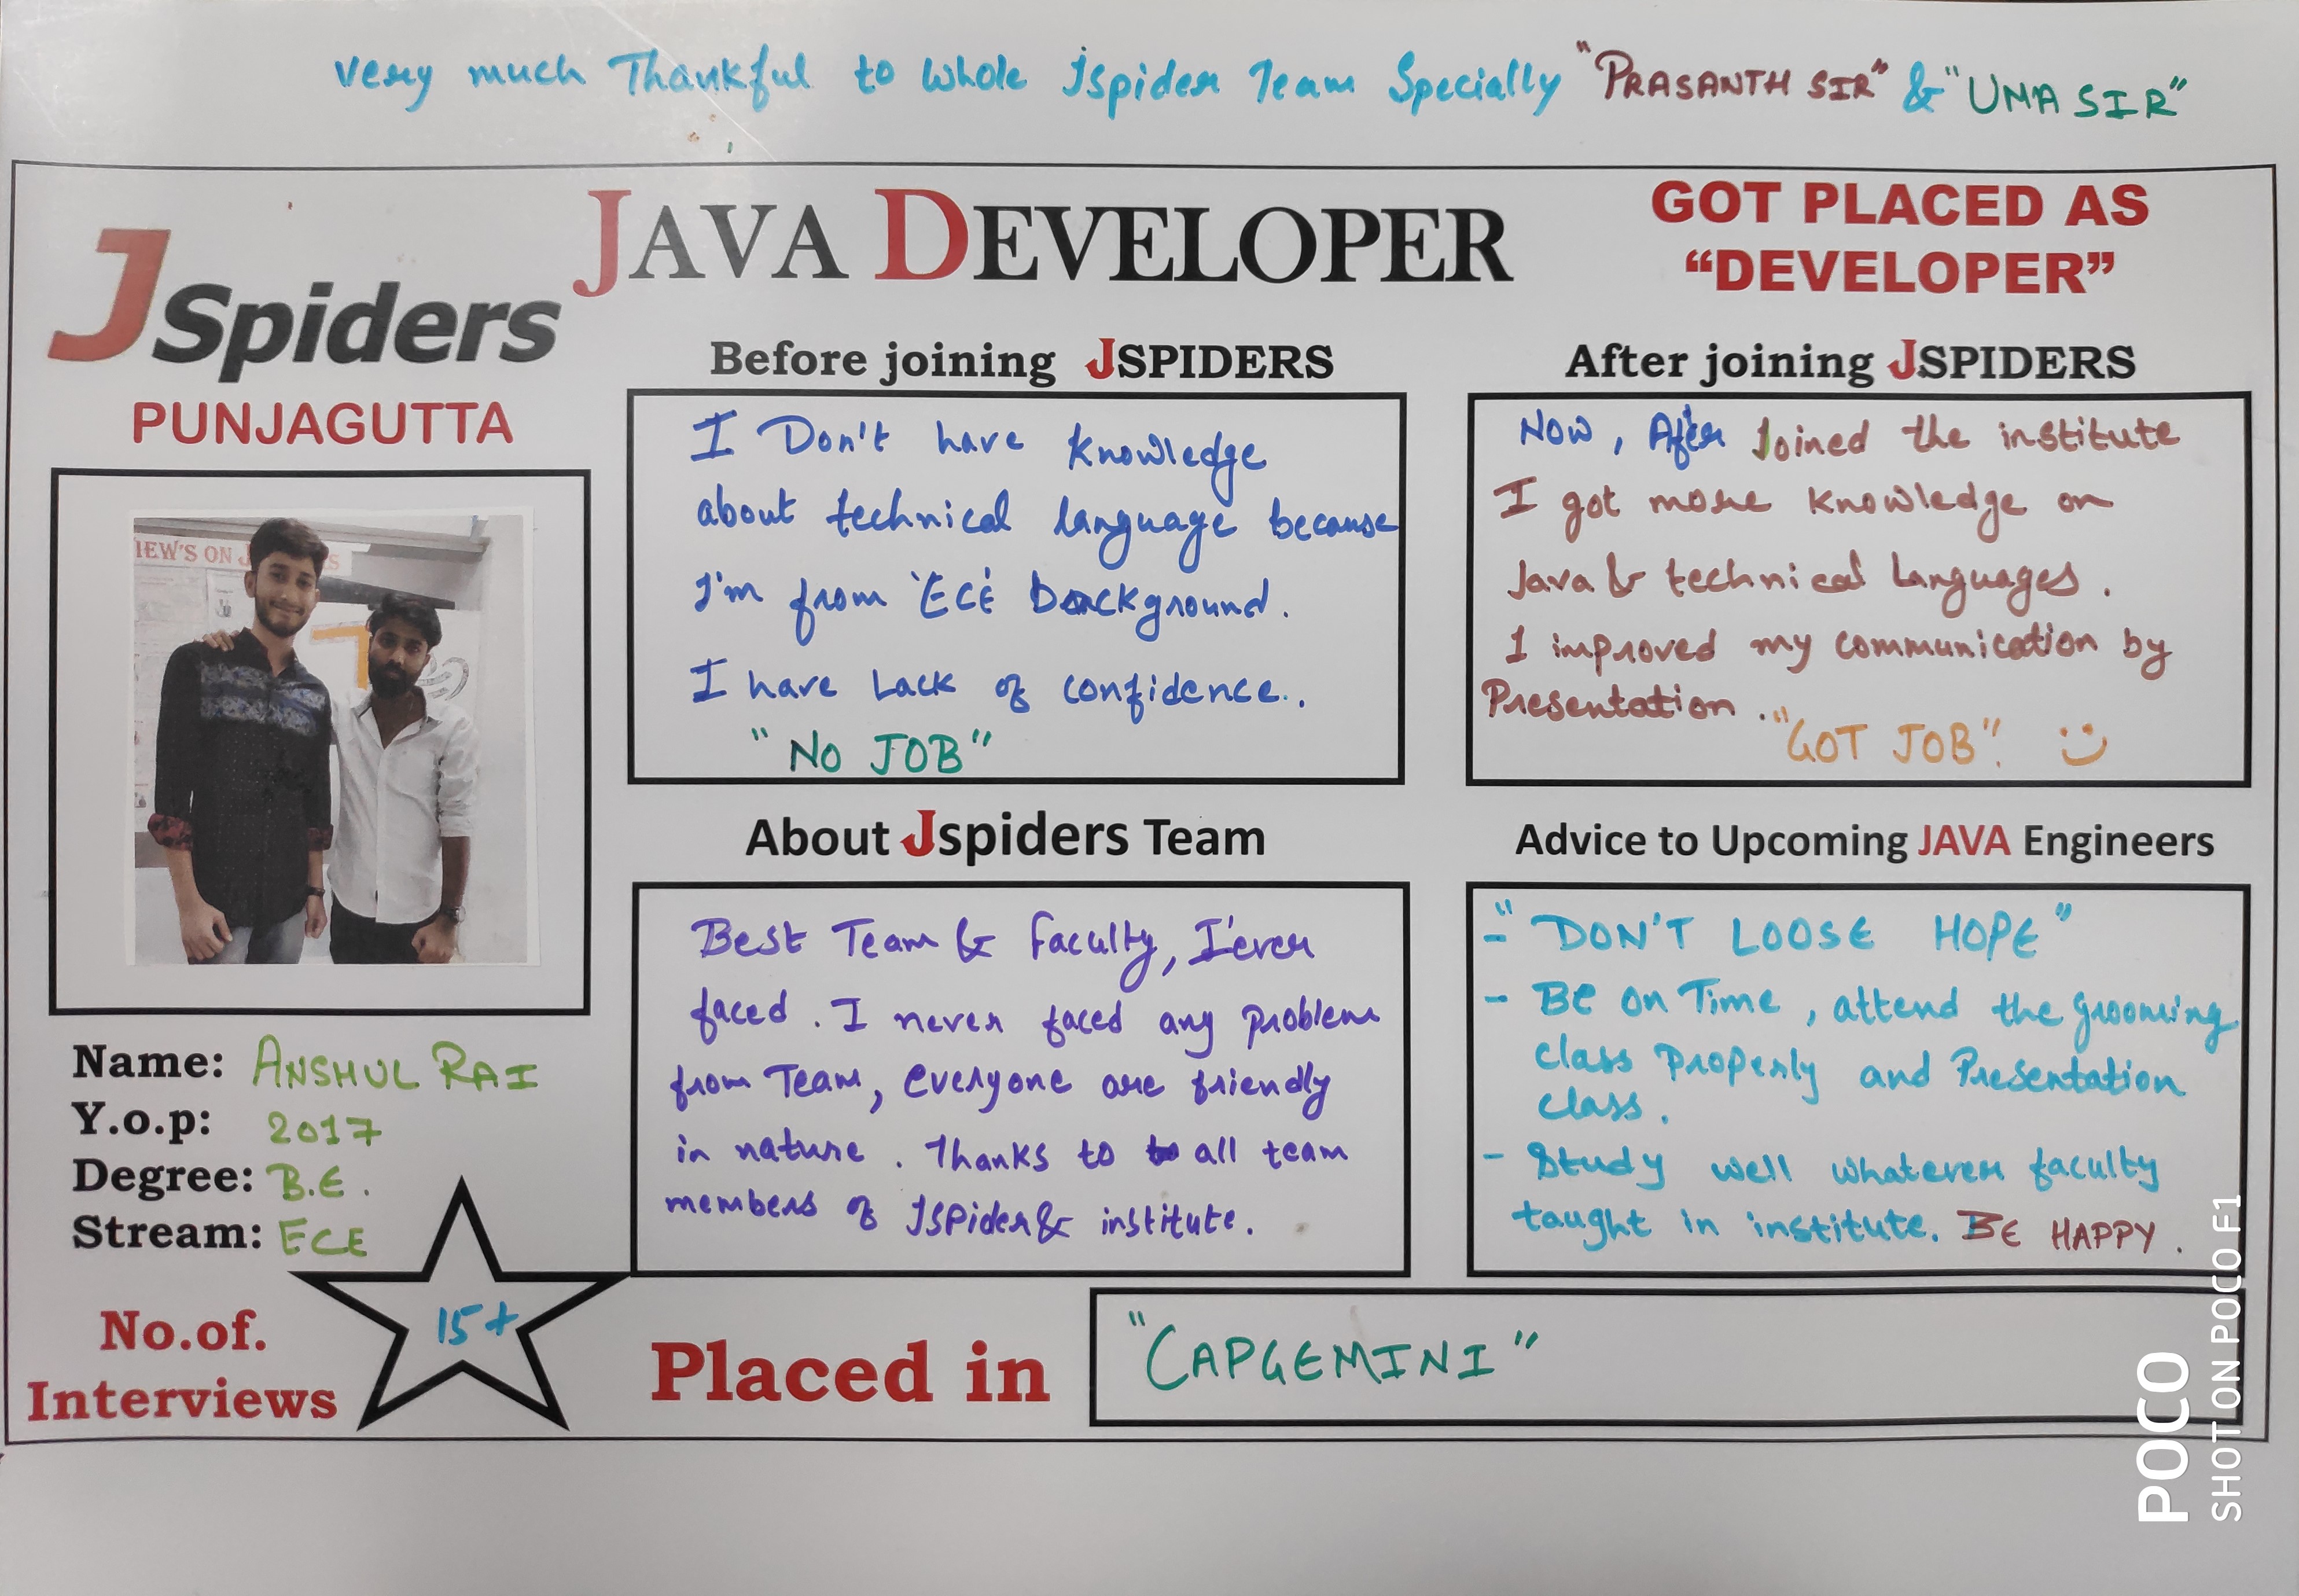 very much Thankful to Whole Jspider Team Specially "PRASANTH SIR" & "UMA SIR"
JAVA DEVELOPER
GOT PLACED AS
“DEVELOPER”
JSpiders
PUNJAGUTTA
IEW'S ON J
Name: ANSHUL RAI
Y.o.p: 2017
Degree: B.E.
Stream: ECE
No.of.
Interviews
15+
Before joining JSPIDERS
I Don't have knowledge
about technical language because
I'm from 'ECE' Background.
I have Lack of confidence..
"NO JOB"
After joining JSPIDERS
Now, After Joined the institute
I got more knowledge on
Java & technical Languages.
I improved my communication by
Presentation.
"GOT JOB".
About Jspiders Team
Best Team & Faculty, I'ever
faced. I never faced any problem
from Team, everyone are friendly
in nature. Thanks to all team
members of JSpider & institute.
Advice to Upcoming JAVA Engineers
- "DON'T LOOSE HOPE"
- Be on Time, attend the grooming
class Properly and Presentation
class.
- Study well whatever faculty
taught in institute. BE HAPPY.
Placed in
"CAPGEMINI"
POCO
SHOT ON POCO F1